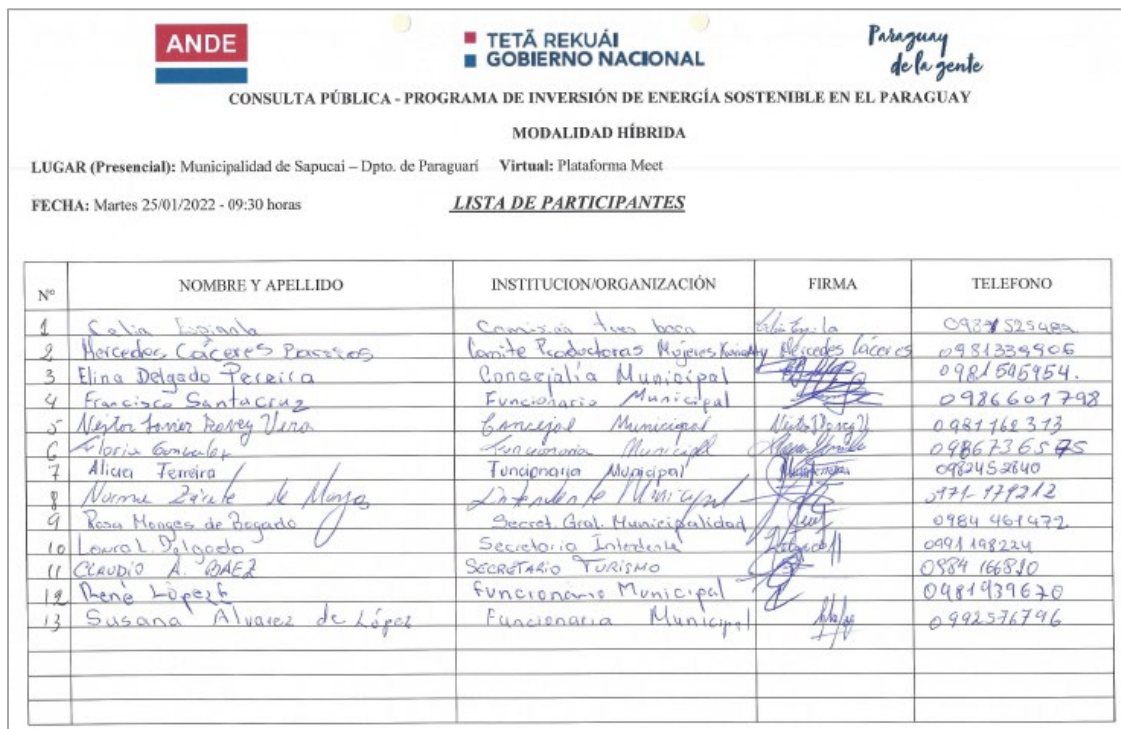 ANDE
TETÃ REKUÁI
GOBIERNO NACIONAL
Paraguay
de la gente
CONSULTA PÚBLICA - PROGRAMA DE INVERSIÓN DE ENERGÍA SOSTENIBLE EN EL PARAGUAY
MODALIDAD HÍBRIDA
LUGAR (Presencial): Municipalidad de Sapucai – Dpto. de Paraguarí Virtual: Plataforma Meet
FECHA: Martes 25/01/2022 - 09:30 horas LISTA DE PARTICIPANTES
Nº NOMBRE Y APELLIDO INSTITUCION/ORGANIZACIÓN FIRMA TELEFONO
1 Celia
2 Mercedes Cáceres Comite Productoras Mujeres Mercedes Cáceres 0981339906
3 Elina Delgado Pereira Concejalía Municipal
4 Francisco Santacruz Funcionario Municipal 0986601798
5 Concejal Municipal 0981162313
6 Gonzalez Funcionaria Municipal
7 Alicia Ferreira Funcionaria Municipal 0982452840
8 Norma Zárate de Intendente Municipal
9 Rosa Monges de Bogado Secret. Gral. Municipalidad 0984 461472
10 Laura L. Delgado Secretaria Intendente 0991198224
11 CLAUDIO A. BAEZ SECRETARIO TURISMO 0984 166810
12 René López Funcionario Municipal 0981939670
13 Susana Alvarez de López Funcionaria Municipal 0992576796